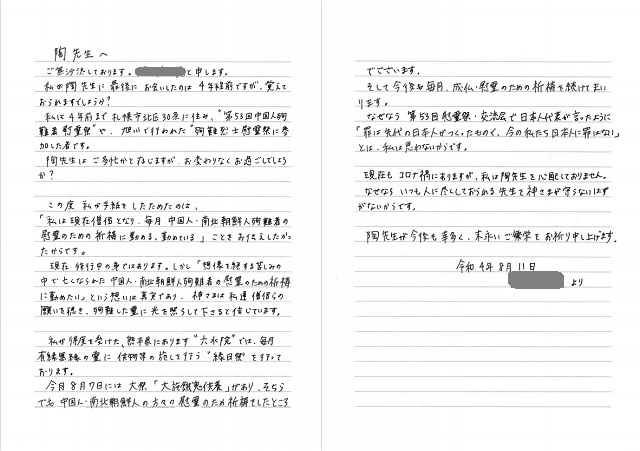 陶先生へ
ご無沙汰しております。 と申します。
私が陶先生に最後にお会いしたのは4年程前ですが、覚えて
おられますでしょうか?
私は4年前まで札幌市北区30条に住み、"第53回中国人殉
難者慰霊祭"や、旭川で行われた"殉難烈士慰霊祭に参
加した者です。
陶先生はご多忙かと存じますが、お変わりなくお過ごしでしょう
か?
この度 私が手紙をしたためたのは、
「私は現在僧侶となり、毎月 中国人・南北朝鮮人殉難者の
慰霊のための祈祷に勤める、勤めている」ことをお伝えしたかっ
たからです。
現在 修行中の身ではあります。しかし「想像を絶する苦しみの
中で亡くなられた 中国人・南北朝鮮人殉難者の慰霊のための祈祷
に勤めたい」という想いは真実であり、神さまは私達 僧侶らの
願いを聴き、殉難した霊に光を照らして下さると信じています。
私が得度を受けた、熊本県にあります"六水院"では、毎月
有縁無縁の霊に供物等の施しを行う"縁日祭"を行って
おります。
今月8月7日には 大祭「大施餓鬼供養」があり、そちら
でも 中国人・南北朝鮮人の方々の慰霊のため祈祷をしたところ
でございます。
そして今後も毎月、成仏・慰霊のための祈祷を続けてまい
ります。
なぜなら 第53回慰霊祭・交流会で日本人代表が言ったように
「罪は先代の日本人がつくったもので、今の私たち日本人に罪はない」
とは、私は思わないからです。
現在も コロナ禍にありますが、私は陶先生を心配しておりません。
なぜなら いつも人に尽くしておられる先生を神さまが守らないはず
がないからです。
陶先生が今後も幸多く、末永いご繁栄をお祈り申し上げます。
令和4年8月11日
より